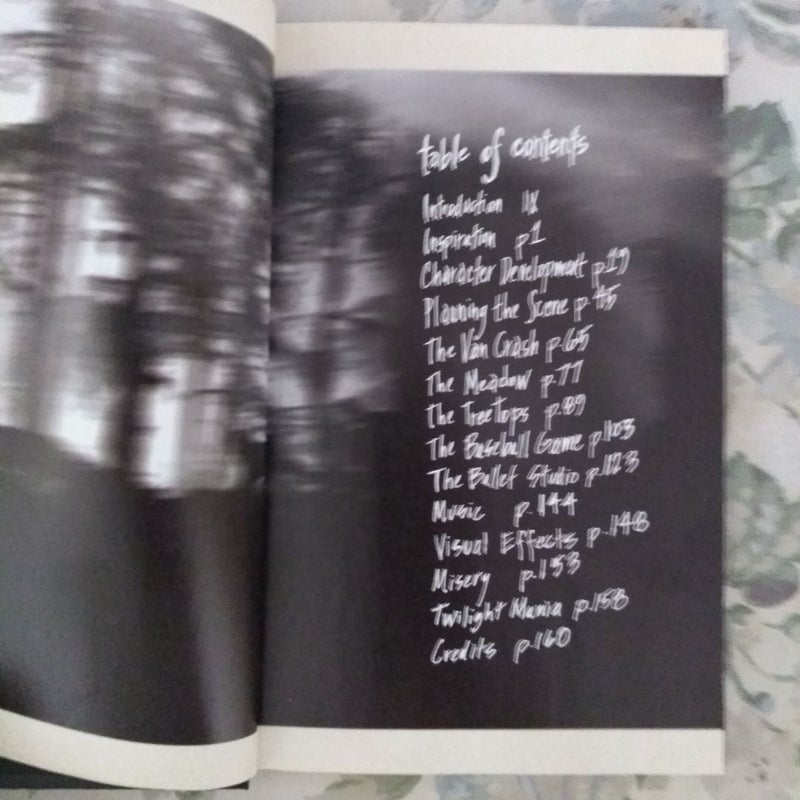 table of contents
Introduction IX
Inspiration p1
Character Development p.19
Planning the Scene p.45
The Van Crash p.65
The Meadow p.77
the TreeTops p.89
The Baseball Game p.103
The Ballet Studio p.123
Music p.144
Visual Effects p.148
Misery p.153
Twilight Mania p.158
Credits p.160